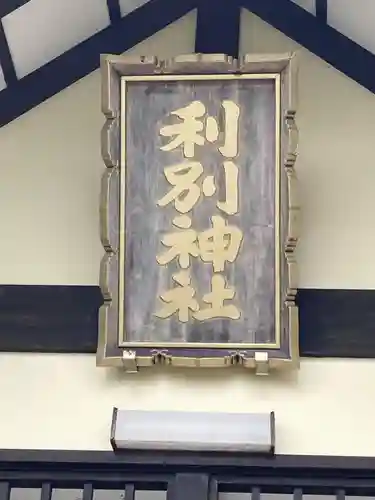 利別神社